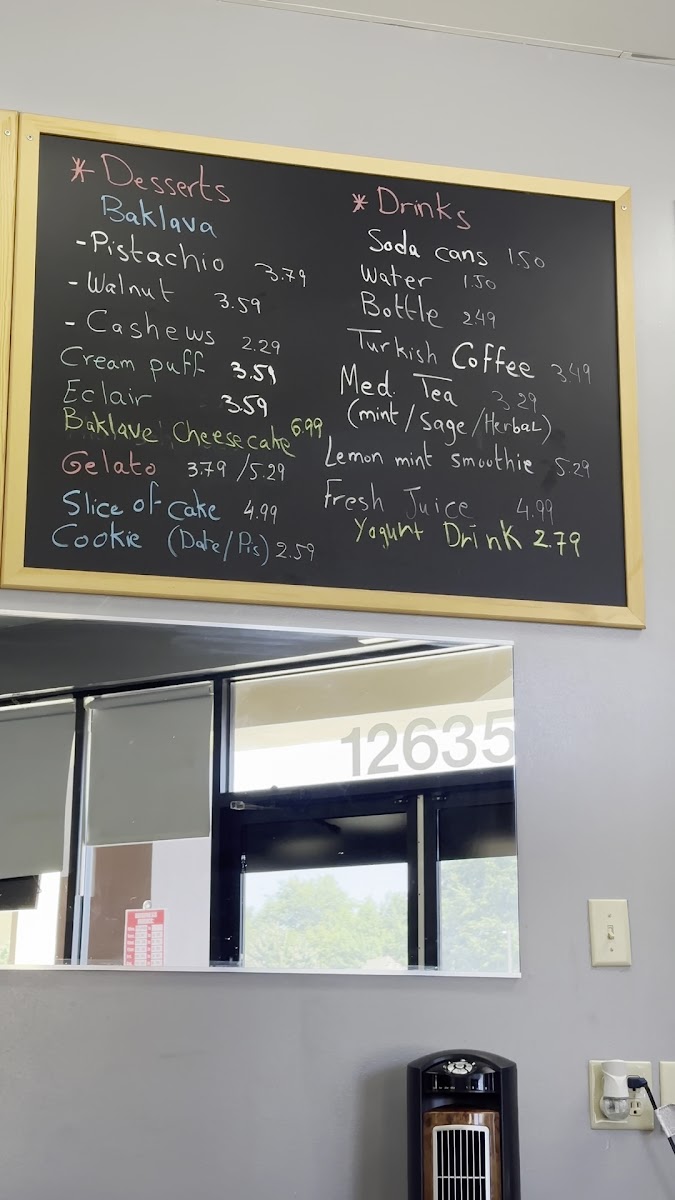 * Desserts
Baklava
- Pistachio 3.79
- Walnut 3.59
- Cashews 2.29
Cream puff 3.59
Eclair 3.59
Baklave Cheesecake 6.99
Gelato 3.79 / 5.29
Slice of cake 4.99
Cookie (Date/Pis) 2.59
* Drinks
Soda cans 1.50
Water 1.50
Bottle 2.49
Turkish Coffee 3.49
Med. Tea 3.29
(mint/Sage/Herbal)
Lemon mint smoothie 5.29
Fresh Juice 4.99
Yogurt Drink 2.79
12635